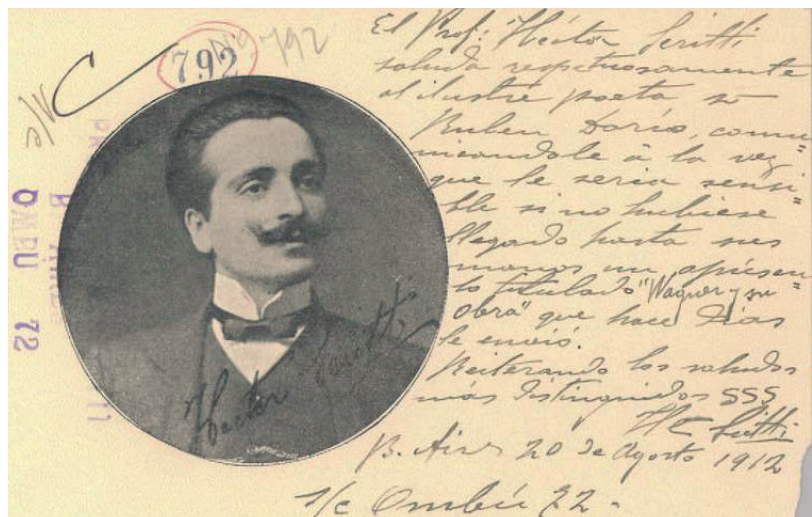 792
792
El Prof: Héctor Scritti
saluda respetuosamente
al ilustre poeta Sr
Ruben Darío, comu"
nicandole á la vez
que le seria sensi"
ble si no hubiese
llegado hasta sus
manos un opúscu"
lo titulado "Wagner y su
Obra" que hace dias
le envió.
Reiterando los saludos
más distinguidos SSS
B. Aires 20 de Agosto 1912
s/c Ombú 72 -
Hector
OMBU 72